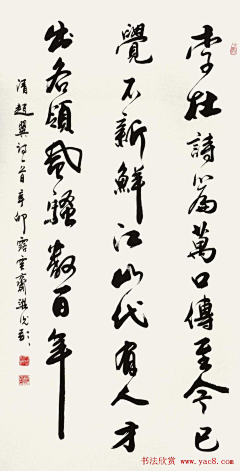 李杜詩篇萬口傳至今已
覺不新鮮江山代有人才
出各領風騷數百年
清趙翼詩一首辛卯
书法欣赏
www.yac8.com